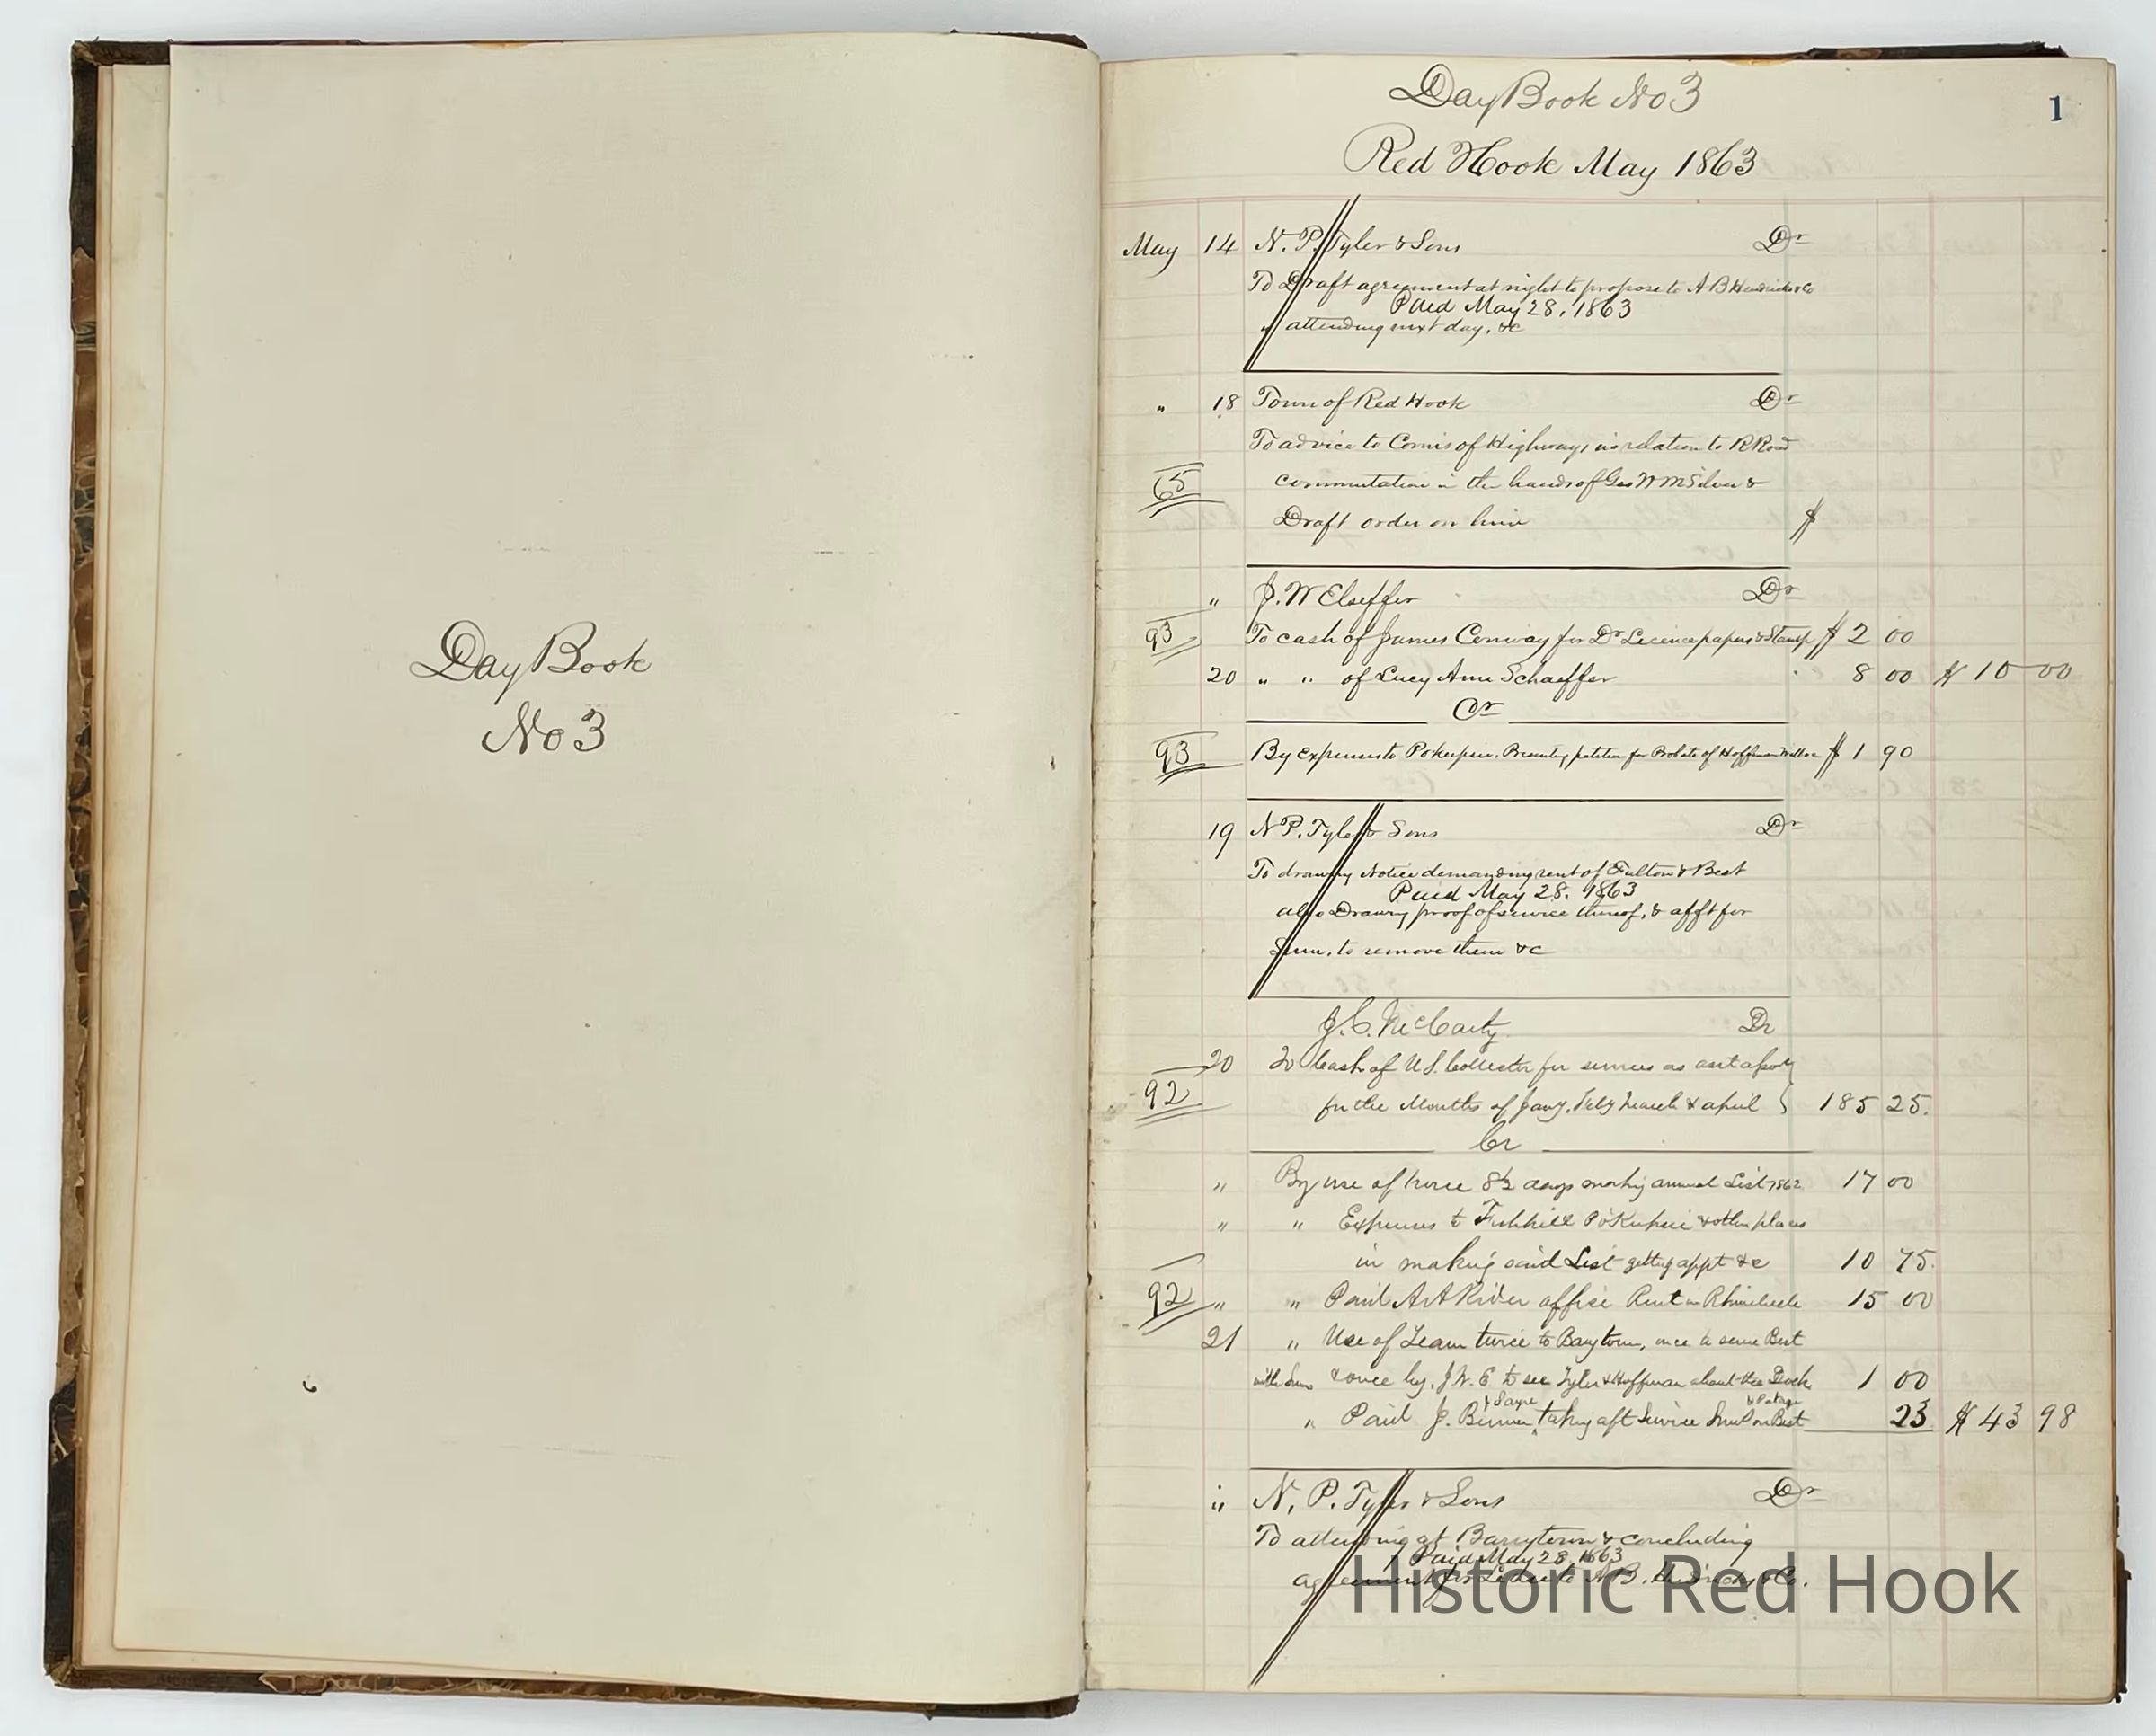 Day Book
No 3
Day Book No 3
1
Red Hook May 1863
May 14 N. P. Tyler & Sons Dr
To Draft agreement at night to propose to A B Hendricks & Co
Paid May 28, 1863
" attending next day, &c
" 18 Town of Red Hook Dr
To advice to Comrs of Highways in relation to R Road
65 commutation in the hands of Geo W
Draft order on him $
" J. W Elseffer Dr
93 To cash of James Conway for Dr Licence papers & Stamp $ 2 00
20 " " of Lucy Ann Schaeffer 8 00 $ 10 00
Cr
93 By expenses to Pokeepsie. Presenting petition for Probate of Hoffman $ 1 90
19 N P. Tyler & Sons Dr
To drawing Notice demanding rent of Fulton & Best
Paid May 28, 1863
also Drawing proof of service thereof, & afft for
Sum. to remove them &c
J. C. McCarty Dr
20 To Cash of U. S. Collector for services as asst
92 for the Months of Jany, Feby March & April 185 25.
Cr
" By use of horse 8½ days making annual List 1862 17 00
" " Expenses to Fishkill Po'Kepsie & other places
in making said List getting appt &c 10 75.
92 " " Paid office Rent in Rhinebeck 15 00
21 " Use of Team twice to Barrytown, once to serve Best
with Sum & once by J. W. E to see Tyler & Hoffman about the Dock 1 00
" Paid J. taking aft Service on Best 23 $ 43 98
" N, P. Tyler & Sons Dr
To attending at Barrytown & concluding
Paid May 28, 1863
agreement A. B. Hendricks & Co.
Historic Red Hook